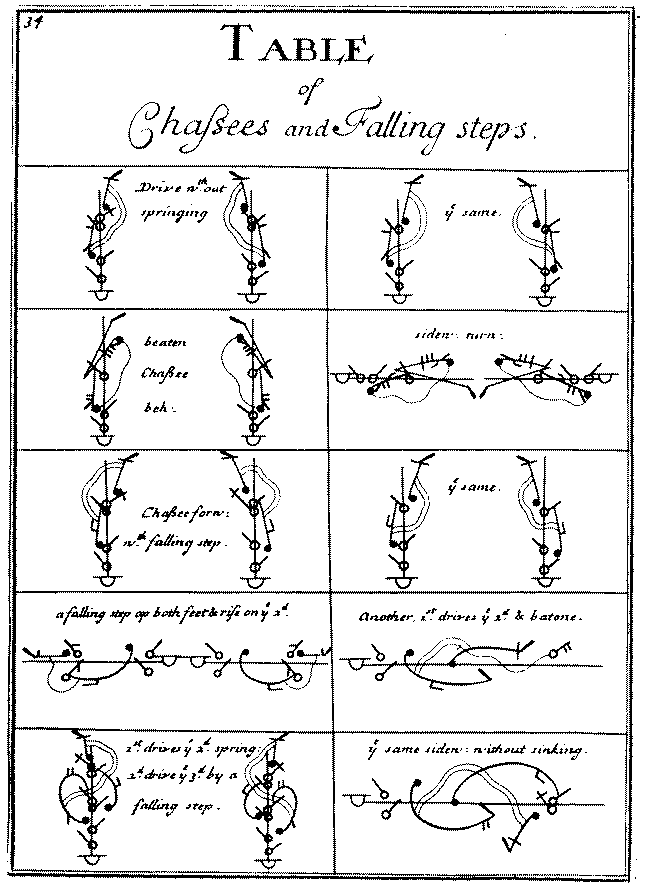 34
TABLE
of
Chaſsees and Falling steps.
Drive wth. out
springing
ye same.
beaten
Chaſsee
beh:
siden: turn:
Chaſsee forw:
wth. falling step.
ye same.
a falling step op both feet & rise on ye 2d.
Another, 1st drives ye 2d & batone.
1st drives ye 2d spring:
2d drive ye 3d by a
falling step.
ye same siden: without sinking.